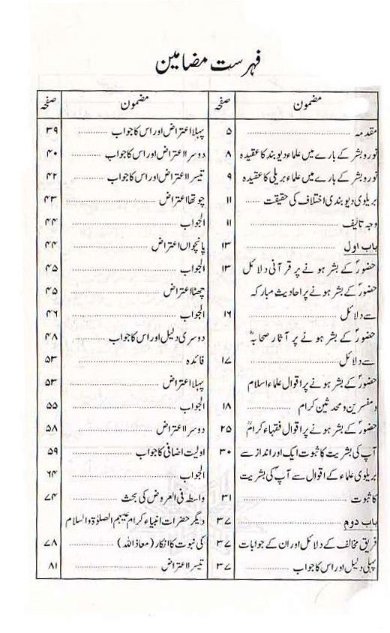 فہرست مضامین
مضمون صفحہ
مقدمہ ۵
نور و بشر کے بارے میں علماء دیوبند کا عقیدہ ۸
نور و بشر کے بارے میں علماء بریلی کا عقیدہ ۹
بریلوی دیوبندی اختلاف کی حقیقت ۱۱
وجہ تالیف ۱۱
باب اول ۱۳
حضورؐ کے بشر ہونے پر قرآنی دلائل ۱۳
حضورؐ کے بشر ہونے پر احادیث مبارکہ
سے دلائل ۱۶
حضورؐ کے بشر ہونے پر آثار صحابہؓ
سے دلائل ۱۷
حضورؐ کے بشر ہونے پر اقوال علماء اسلام
و مفسرین و محدثین کرام ۱۸
حضورؐ کے بشر ہونے پر اقوال فقہاء کرامؒ ۲۵
آپ کی بشریت کا ثبوت ایک اور انداز سے ۳۰
بریلوی علماء کے اقوال سے آپ کی بشریت
کا ثبوت ۳۱
باب دوم ۳۷
فریق مخالف کے دلائل اور ان کے جوابات ۳۷
پہلی دلیل اور اس کا جواب ۳۷
مضمون صفحہ
پہلا اعتراض اور اس کا جواب ۳۹
دوسرا اعتراض اور اس کا جواب ۴۰
تیسرا اعتراض اور اس کا جواب ۴۲
چوتھا اعتراض ۴۳
الجواب ۴۴
پانچواں اعتراض ۴۴
الجواب ۴۵
چھٹا اعتراض ۴۵
الجواب ۴۶
دوسری دلیل اور اس کا جواب ۴۸
فائدہ ۵۳
پہلا اعتراض ۵۳
الجواب ۵۵
دوسرا اعتراض ۵۸
اولیت اضافی کا جواب ۵۹
الجواب ۶۴
واسطہ فی العروض کی بحث ۷۴
دیگر حضرات انبیاء کرام علیہم الصلوٰۃ والسلام
کی نبوت کا انکار (معاذ اللہ) ۷۸
تیسرا اعتراض ۸۱